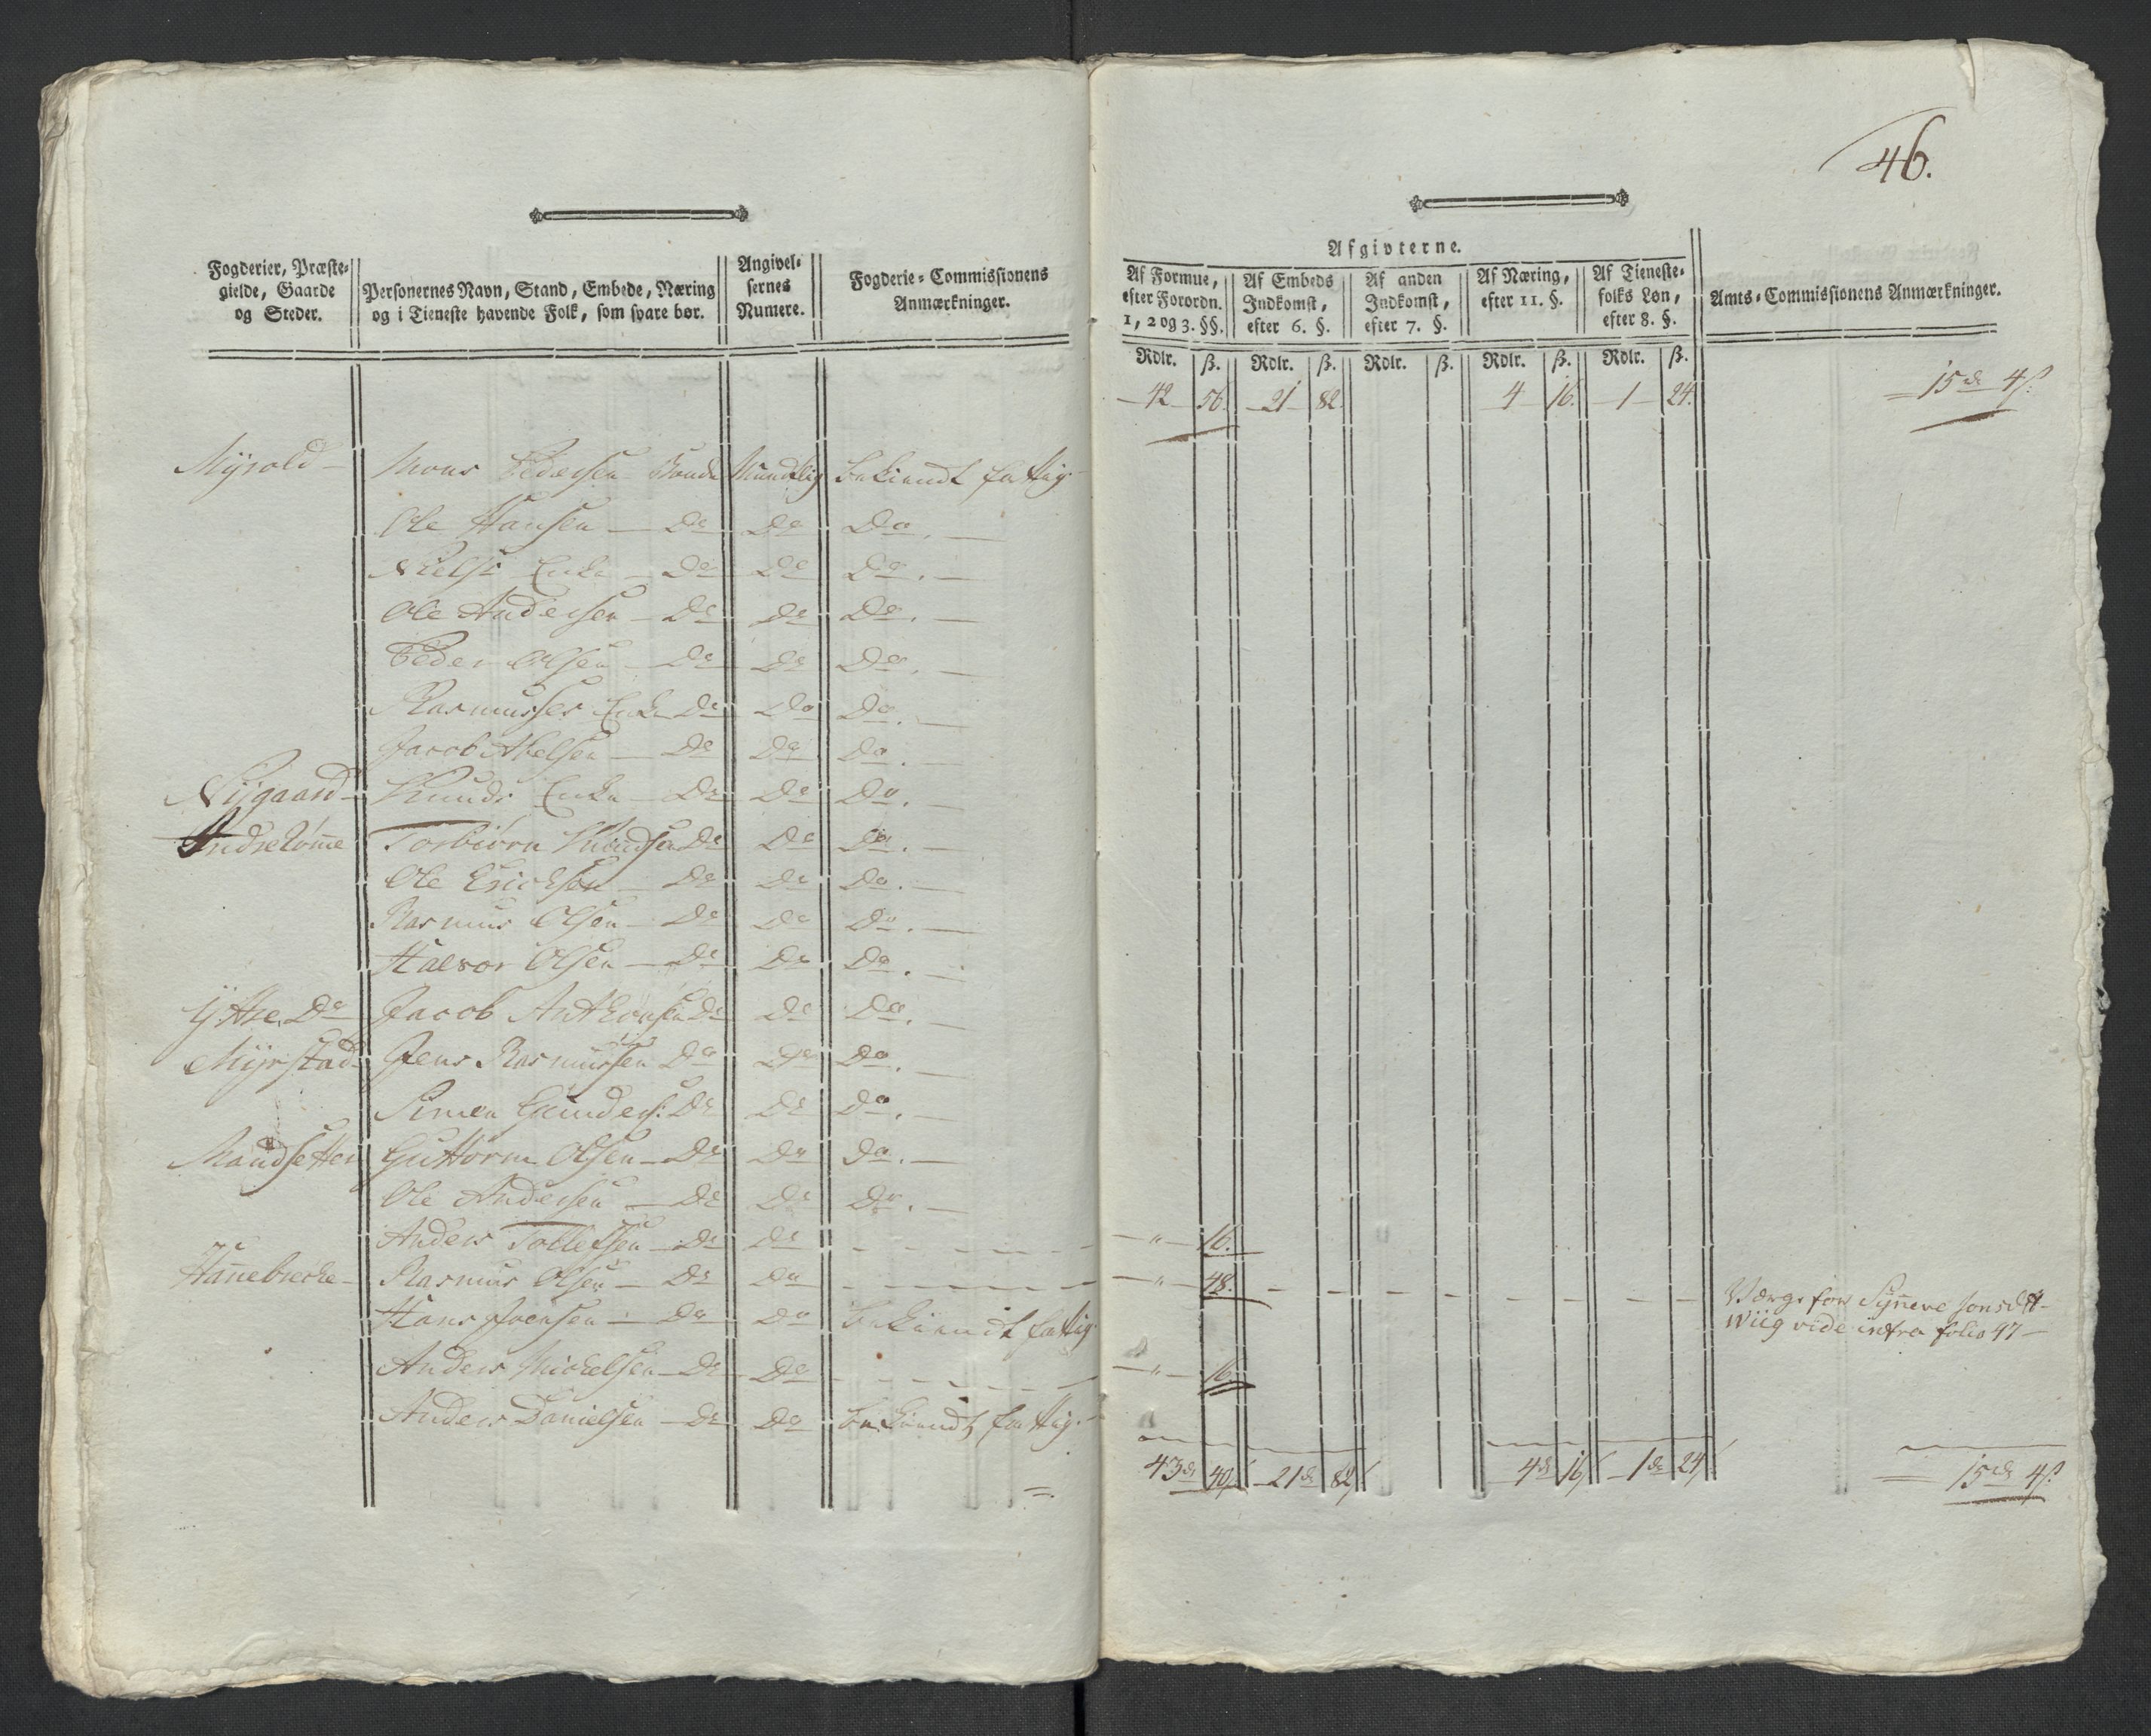 46.
Fogderier, Præste-
gielde, Gaarde
og Steder.
Personernes Navn, Stand, Embede, Næring
og i Tieneste havende Folk, som svare bør.
Angivel-
sernes
Numere.
Fogderie-Commissionens
Anmærkninger.
Afgivterne.
Af Formue,
efter Forordn.
1, 2 og 3. §§.
Af Embeds
Indkomst,
efter 6. §.
Af anden
Indkomst,
efter 7. §.
Af Næring,
efter 11. §.
Af Tieneste-
folks Løn,
efter 8. §.
Amts-Commissionens Anmærkninger.
Rdlr. ß. Rdlr. ß. Rdlr. ß. Rdlr. ß. Rdlr. ß.
42 56. 21 82. 4 16. 1 24. 15 rd 4 ß.
Myrold Mons Pedersen Bonde Mundtlig bekiendt fattig
Ole Hansen Do Do Do.
Nielss Enke Do Do Do.
Ole Andersen Do Do Do.
Peder Olsen Do Do Do.
Rasmusses Enke Do Do Do.
Jacob Abelsen Do Do Do.
Nygaard Knuds Enke Do Do Do.
Indretømme Torbiørn Knudsen Do Do Do.
Ole Erichsen Do Do Do.
Rasmus Olsen Do Do Do.
Halvor Olsen Do Do Do.
Yttre Do Jacob Anthonsen Do Do Do.
Myrstad Jens Rasmussen Do Do Do.
Simen Gunders: Do Do Do.
Mandsetter Guttorm Olsen Do Do Do.
Ole Andersen Do Do Do.
Anders Tollefsen Do Do " 16.
Hannebrecke Rasmus Olsen Do Do " 48. Værge for Synneve Jonsdtt
Wiig vide infra folio 47
Hans Joensen Do Do bekiendt fattig
Anders Mickelsen Do Do " 16.
Anders Danielsen Do Do bekiendt fattig.
43 rd 40 21 rd 82 4 rd 16 1 rd 24 15 rd 4 ß.